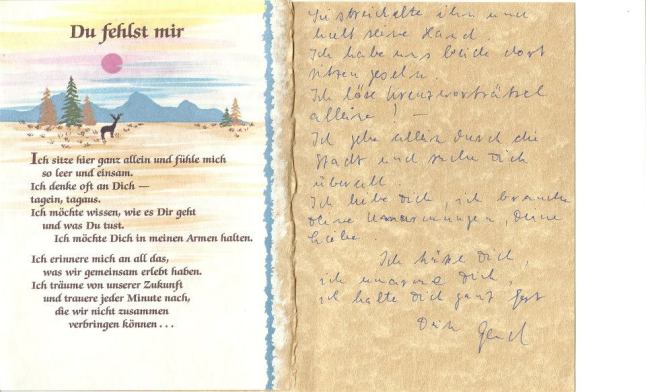 Du fehlst mir
Ich sitze hier ganz allein und fühle mich
so leer und einsam.
Ich denke oft an Dich —
tagein, tagaus.
Ich möchte wissen, wie es Dir geht
und was Du tust.
Ich möchte Dich in meinen Armen halten.
Ich erinnere mich an all das,
was wir gemeinsam erlebt haben.
Ich träume von unserer Zukunft
und trauere jeder Minute nach,
die wir nicht zusammen
verbringen können . . .
Sie streichelte ihn und
hielt seine Hand.
Ich habe uns beide dort
sitzen gesehn.
Ich löse Kreuzworträtsel
alleine ! —
Ich gehe allein durch die
Stadt und suche Dich
überall.
Ich liebe Dich, ich brauche
Deine Umarmungen, Deine
Liebe.
Ich küsse Dich,
ich umarme Dich,
ich halte Dich ganz fest
Dein